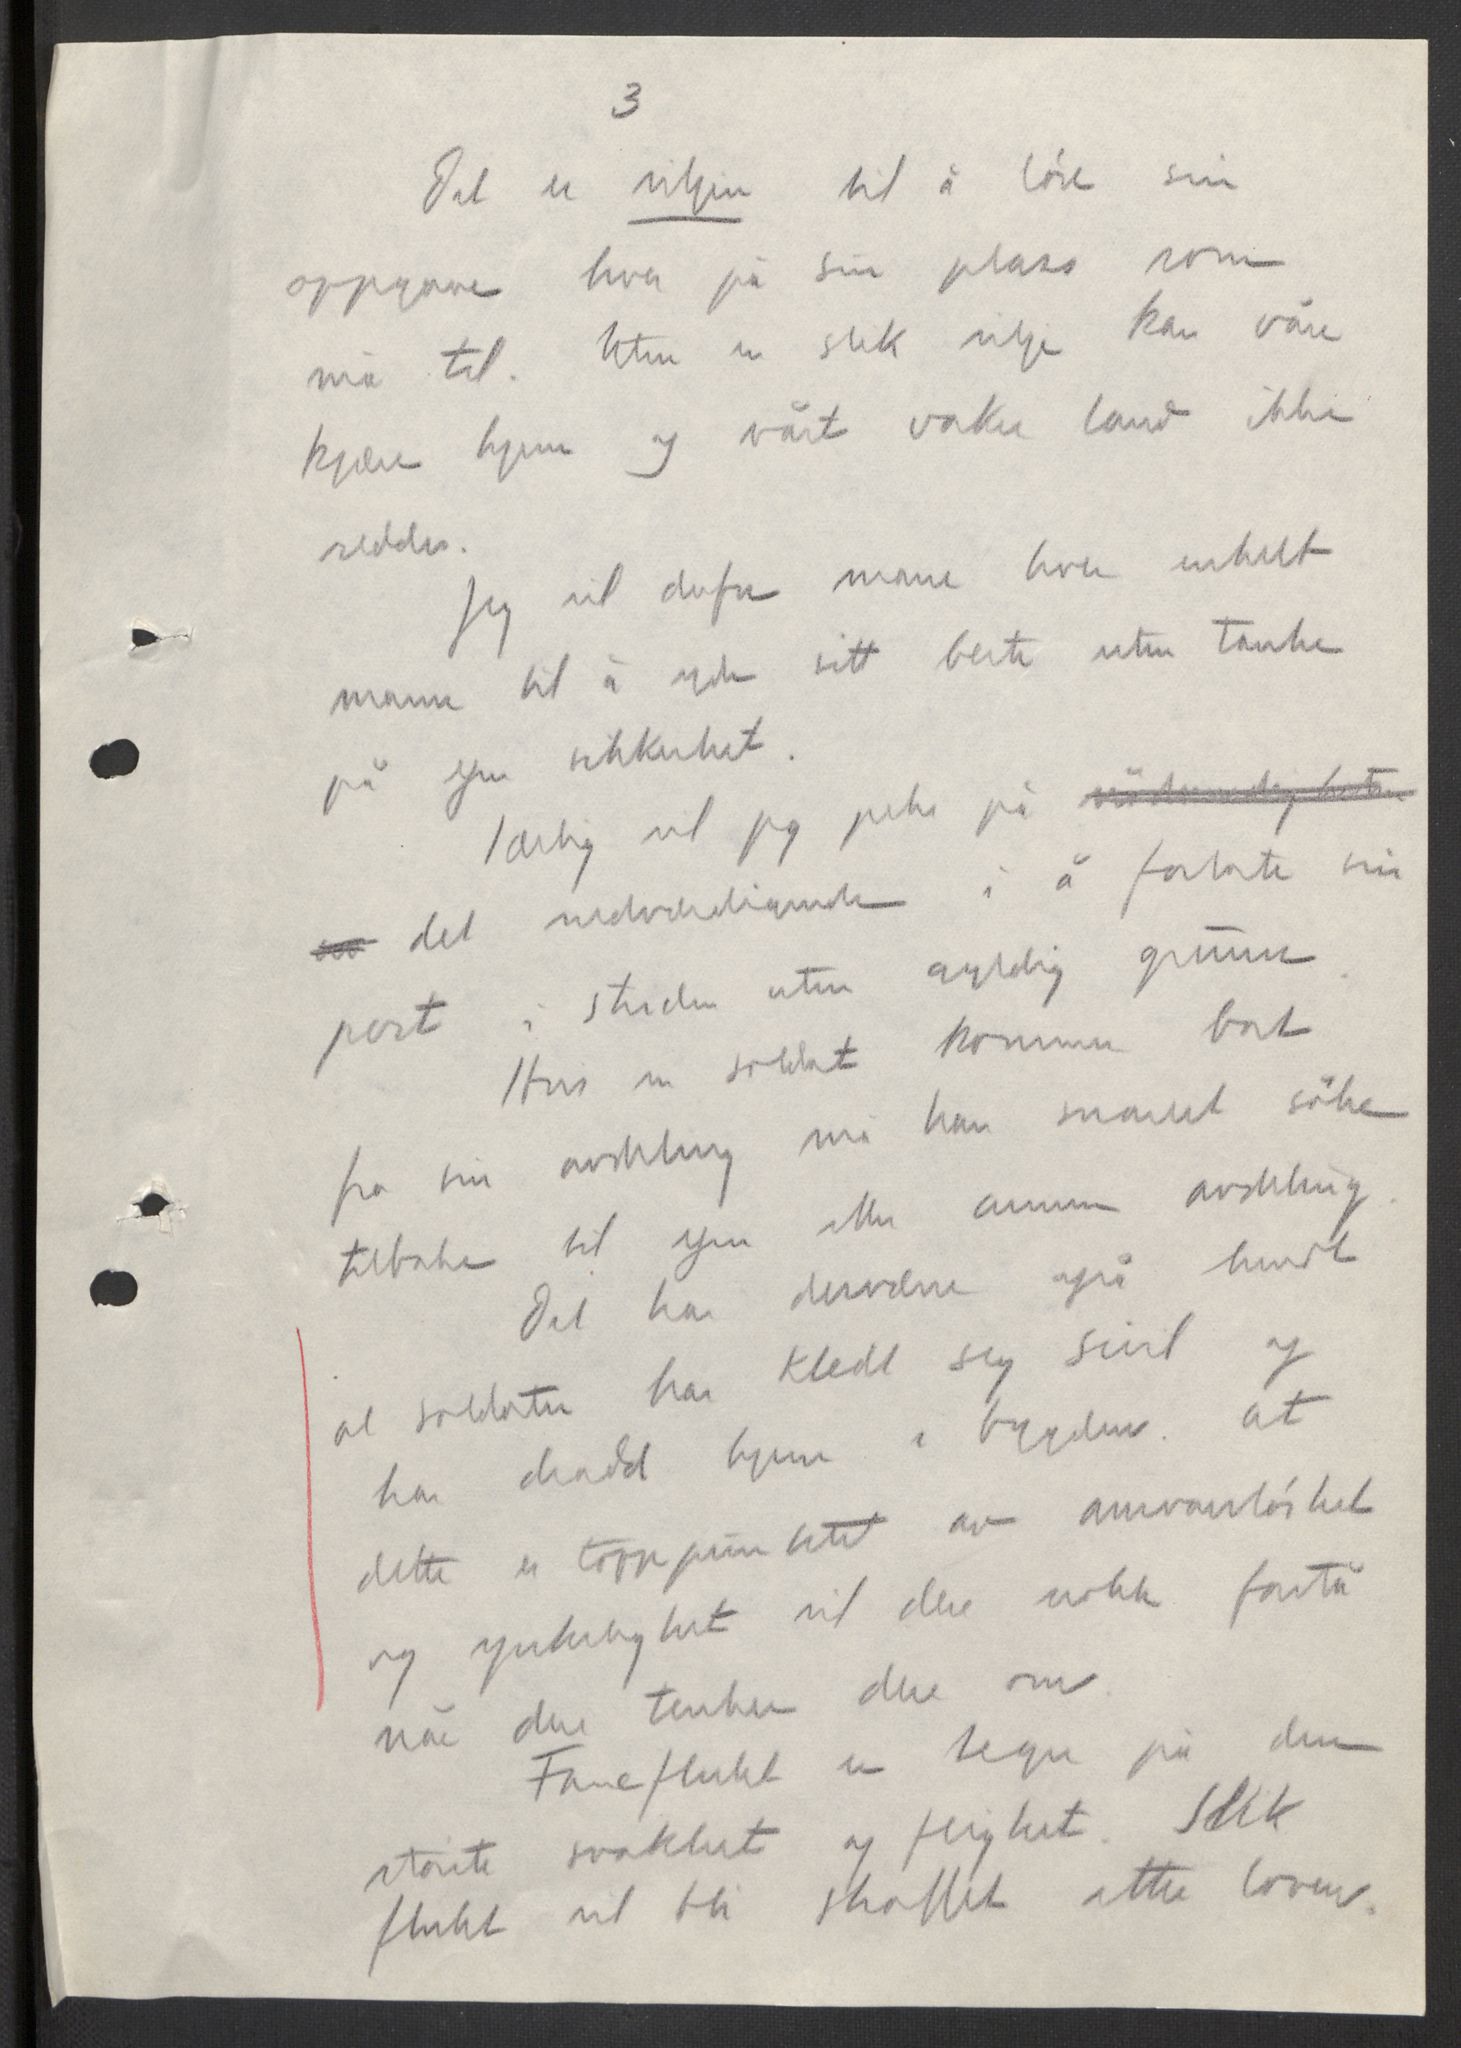 3
Det er viljen til å løse sin
oppgave hver på sin plass som
må til. Uten en slik vilje kan våre
kjære hjem og vårt vakre land ikke
reddes.
Jeg vil derfor mane hver enkelt
mann til å yde sitt beste uten tanke
på egen sikkerhet.
Særlig vil jeg peke på
det nedverdigende i å forlate sin
post i striden uten gyldig grunn.
Hvis en soldat kommer bort
fra sin avdeling må han snarest söke
tilbake til egen eller annen avdeling.
Det har dessverre også hendt
at soldater har kledt seg sivil og
har dradd hjem i bygden. At
dette er toppunktet av ansvarløshet
og ynkelighet vil dere nokk forstå
når dere tenker dere om.
Faneflukt er tegn på den
største svakhet og feighet. Slik
flukt vil bli straffet etter loven.